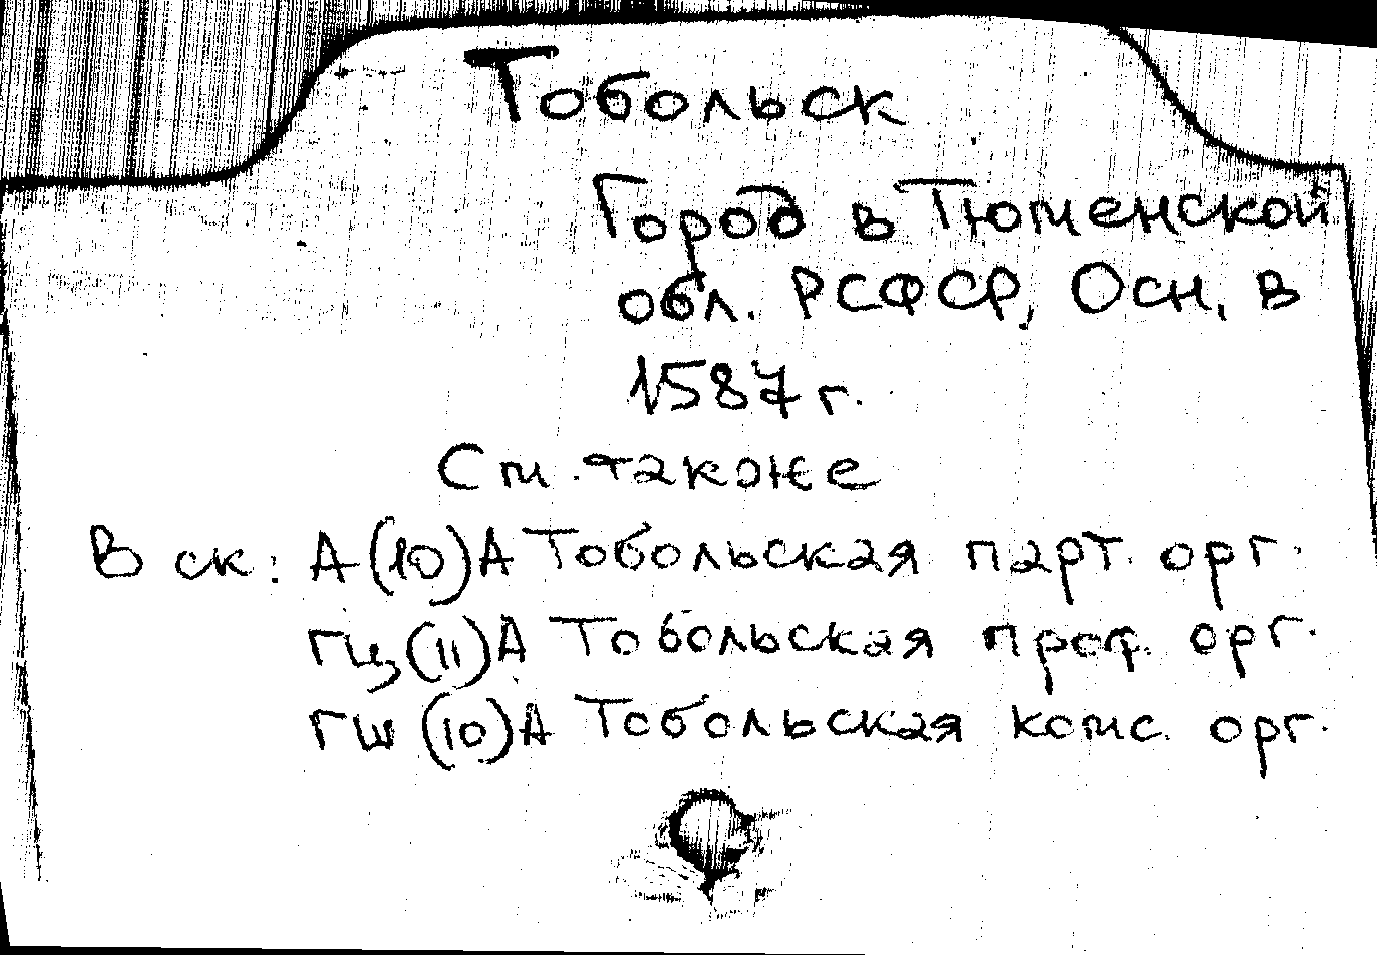 Тобольск
Город в Тюменской
обл. РСФСР, Осн. в
1587 г.
См. также
В ск: А(10)А Тобольская парт. орг.
ГЦ(11)А Тобольская проф. орг.
ГШ(10)А Тобольская комс. орг.